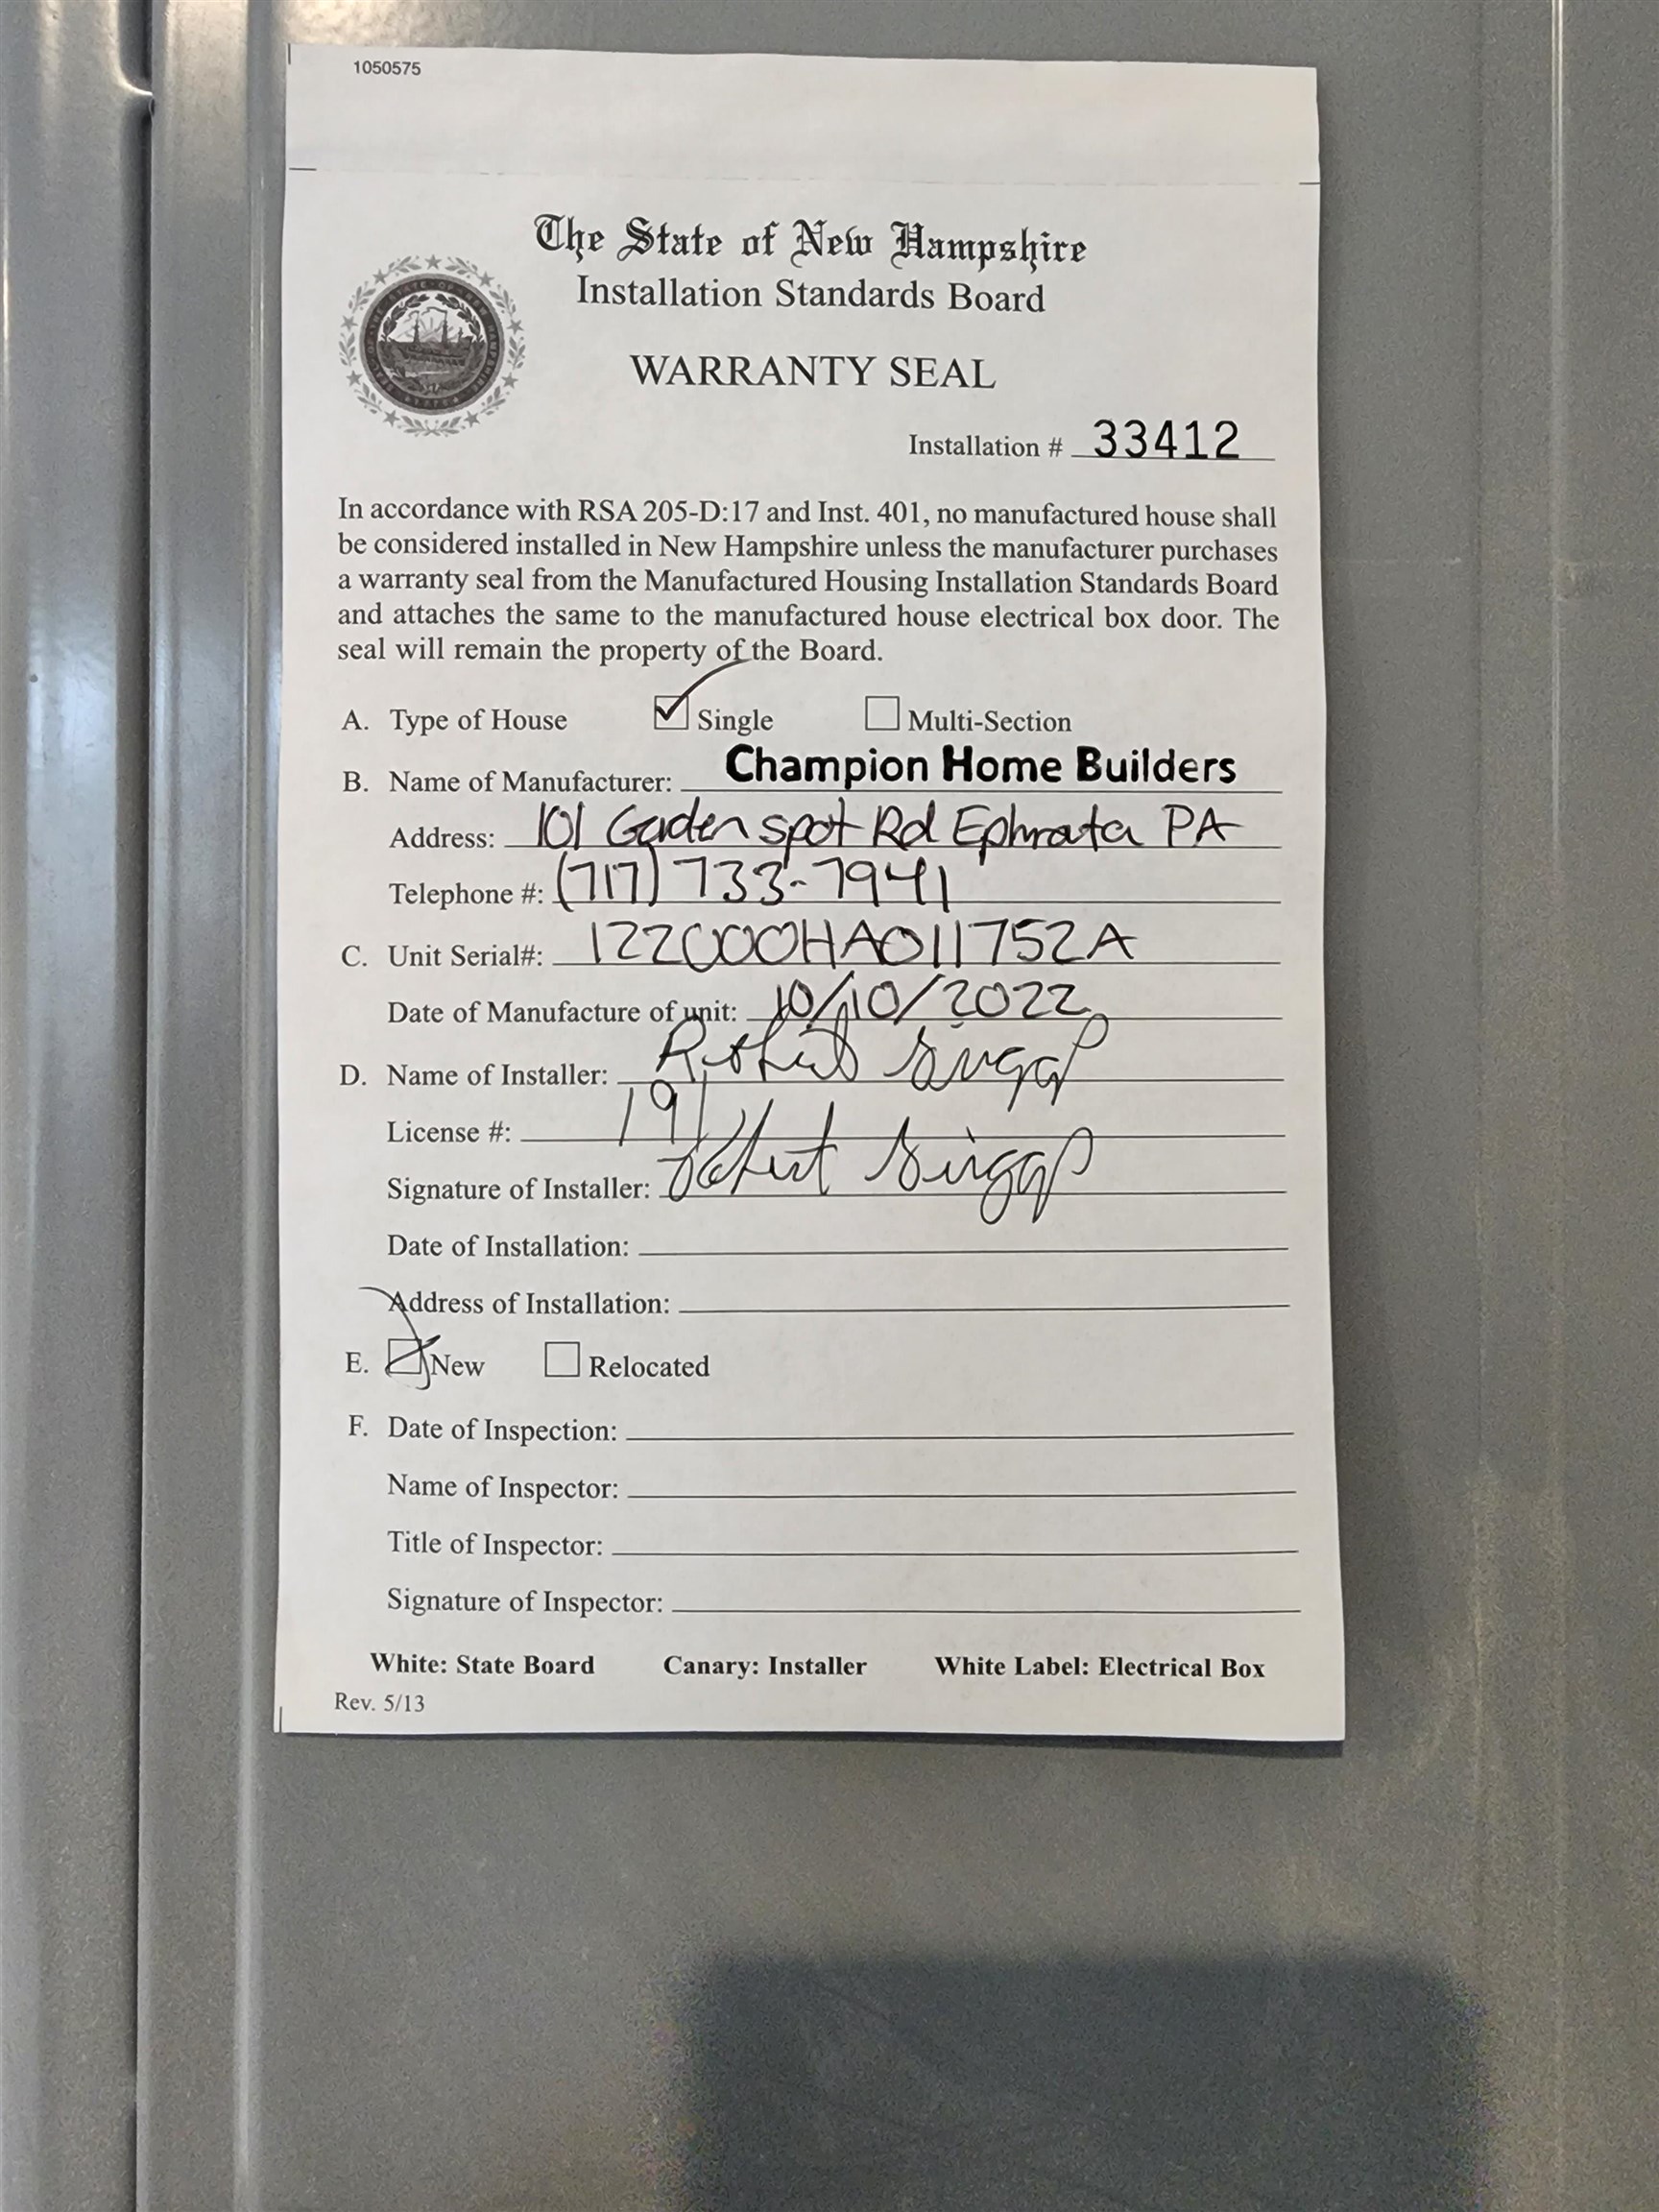 1050575
The State of New Hampshire
Installation Standards Board
WARRANTY SEAL
Installation # 33412
In accordance with RSA 205-D:17 and Inst. 401, no manufactured house shall
be considered installed in New Hampshire unless the manufacturer purchases
a warranty seal from the Manufactured Housing Installation Standards Board
and attaches the same to the manufactured house electrical box door. The
seal will remain the property of the Board.
A. Type of House Single Multi-Section
B. Name of Manufacturer: Champion Home Builders
Address: 101 Garden spot Rd Ephrata PA
Telephone #: (717) 733-7941
C. Unit Serial#: 122000HA011752A
Date of Manufacture of unit: 10/10/2022
D. Name of Installer: Robert
License #: 191
Signature of Installer: Robert
Date of Installation:
Address of Installation:
E. New Relocated
F. Date of Inspection:
Name of Inspector:
Title of Inspector:
Signature of Inspector:
White: State Board Canary: Installer White Label: Electrical Box
Rev. 5/13